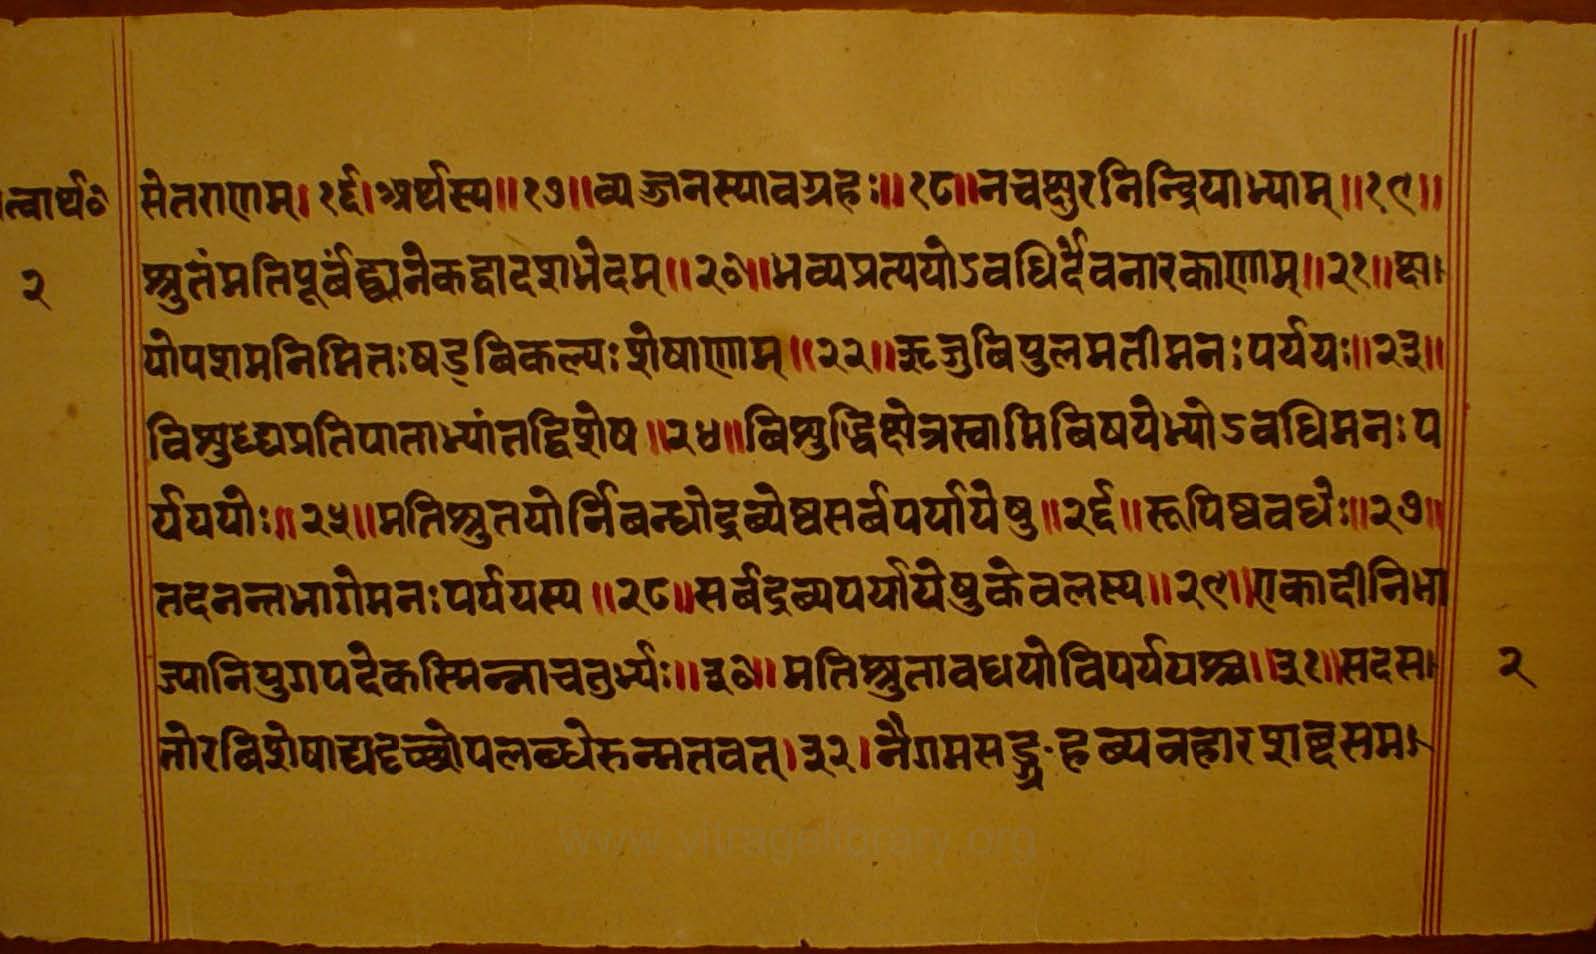 त्वार्थ०
सेतराणाम्। १६। अर्थस्य॥ १७॥ व्यञ्जनस्यावग्रहः॥ १८॥ नचक्षुरनिन्द्रियाभ्याम्॥ १९॥
२
श्रुतंमतिपूर्बंद्ध्यनेकद्वादशभेदम्॥ २०॥ भव्यप्रत्ययोऽवधिर्देवनारकाणाम्॥ २१॥ क्ष।
योपशमनिमितःषड्बिकल्यःशेषाणाम्॥ २२॥ ऋजुबिपुलमतीमनःपर्ययः॥ २३॥
विशुध्द्यप्रतिपाताभ्यांतद्विशेष॥ २४॥ बिशुद्धिक्षेत्रस्वामिबिषयेभ्योऽवधिमनःप
र्यययोः॥ २५॥ मतिश्रुतयोर्निबन्धोद्रब्येष्वसर्बपर्यायेषु॥ २६॥ रूपिष्ववधेः॥ २७॥
तदनन्तभागेमनःपर्ययस्य॥ २८॥ सर्बद्रब्यपर्यायेषुकेवलस्य॥ २९॥ एकादीनिभा
ज्यानियुगपदेकस्मिन्नाचतुर्भ्यः॥ ३०॥ मतिश्रुतावधयोविपर्ययश्च॥ ३१॥ सदस।
२
तोरबिशेषाद्यदृच्छोपलब्धेरुन्मतवत्। ३२। नैगमसङ्ग्रहब्यवहारशब्दसम।
www.vitragelibrary.org